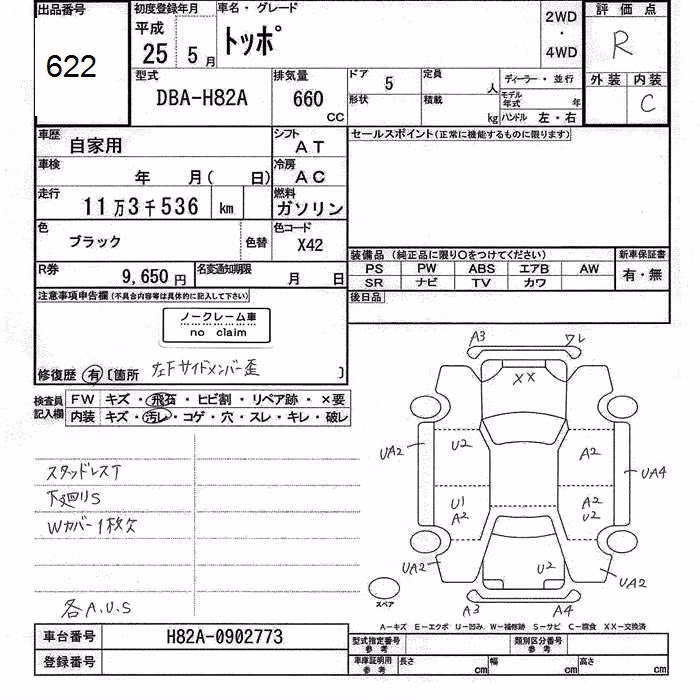 出品番号 初度登録年月 車名・グレード 2WD 評価点
622 平成 トッポ ・ R
25 5月 4WD 外装 内装
型式 排気量 ドア 5 定員 人 ディーラー・並行 C
DBA-H82A 660 CC 形状 積載 kg モデル年式 年
ハンドル 左・右
車歴 自家用 シフト AT セールスポイント(正常に機能するものに限ります)
車検 年 月( 日) 冷房 AC
走行 11万3千536 km 燃料 ガソリン
色 ブラック 色替 色コード X42
装備品 (純正品に限り○をつけてください) 新車保証書
R券 9,650円 名変通知期限 月 日 PS PW ABS エアB AW 有・無
SR ナビ TV カワ
注意事項申告欄(不具合内容等は具体的に記入して下さい) 後日品
ノークレーム車
no claim
修復歴 有 〔箇所 左Fサイドメンバー歪 〕
検査員記入欄 FW キズ・飛石・ヒビ割・リペア跡・×要
内装 キズ・汚レ・コゲ・穴・スレ・キレ・破レ
A3 ワレ
XX
UA2 U2 A2 UA4
スタッドレスT
下廻りS
U1 A2
Wカバー1枚欠 A2 U2
UA2 U2 UA2
スペア
各A.U.S A3 A4
A−キズ E−エクボ U−凹み W−補修跡 S−サビ C−腐食 XX−交換済
車台番号 H82A-0902773 型式指定番号 参考 類別区分番号 参考
登録番号 車庫証明用 参考 長さ cm 幅 cm 高さ cm